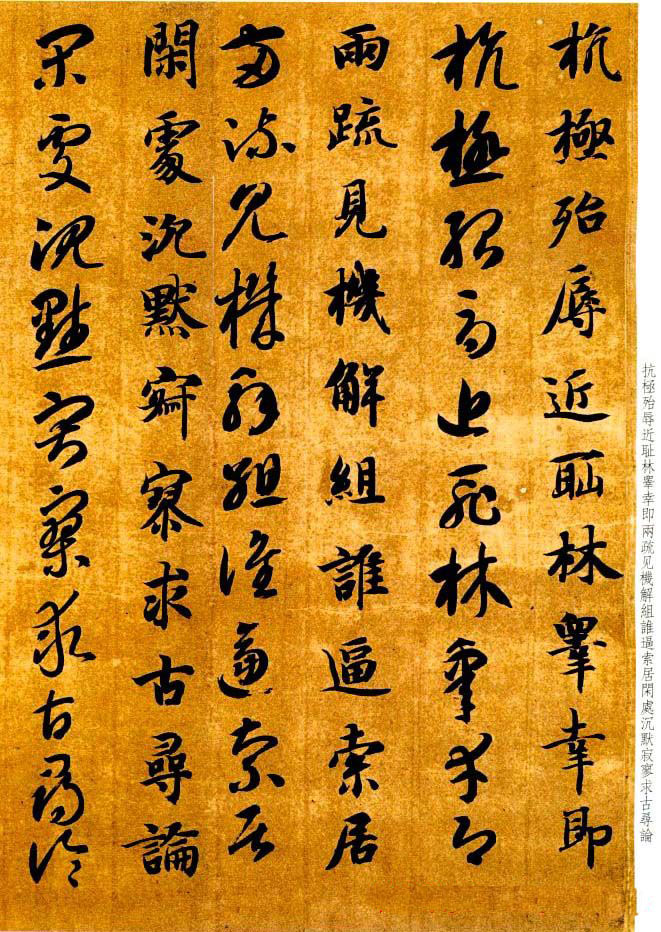 抗極殆辱近耻林睾幸即
抗極殆辱近耻林睾幸即
兩疏見機解組誰逼索居
兩疏見機解組誰逼索居
閑處沉默寂寥求古尋論
閑處沉默寂寥求古尋論
抗極殆辱近耻林睾幸即兩疏见機解組誰逼索居閑處沉默寂寥求古尋論